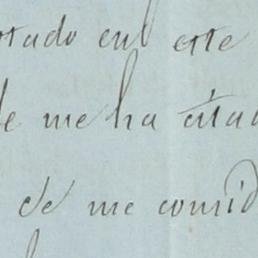 otado en este
de me ha citad
de me consid